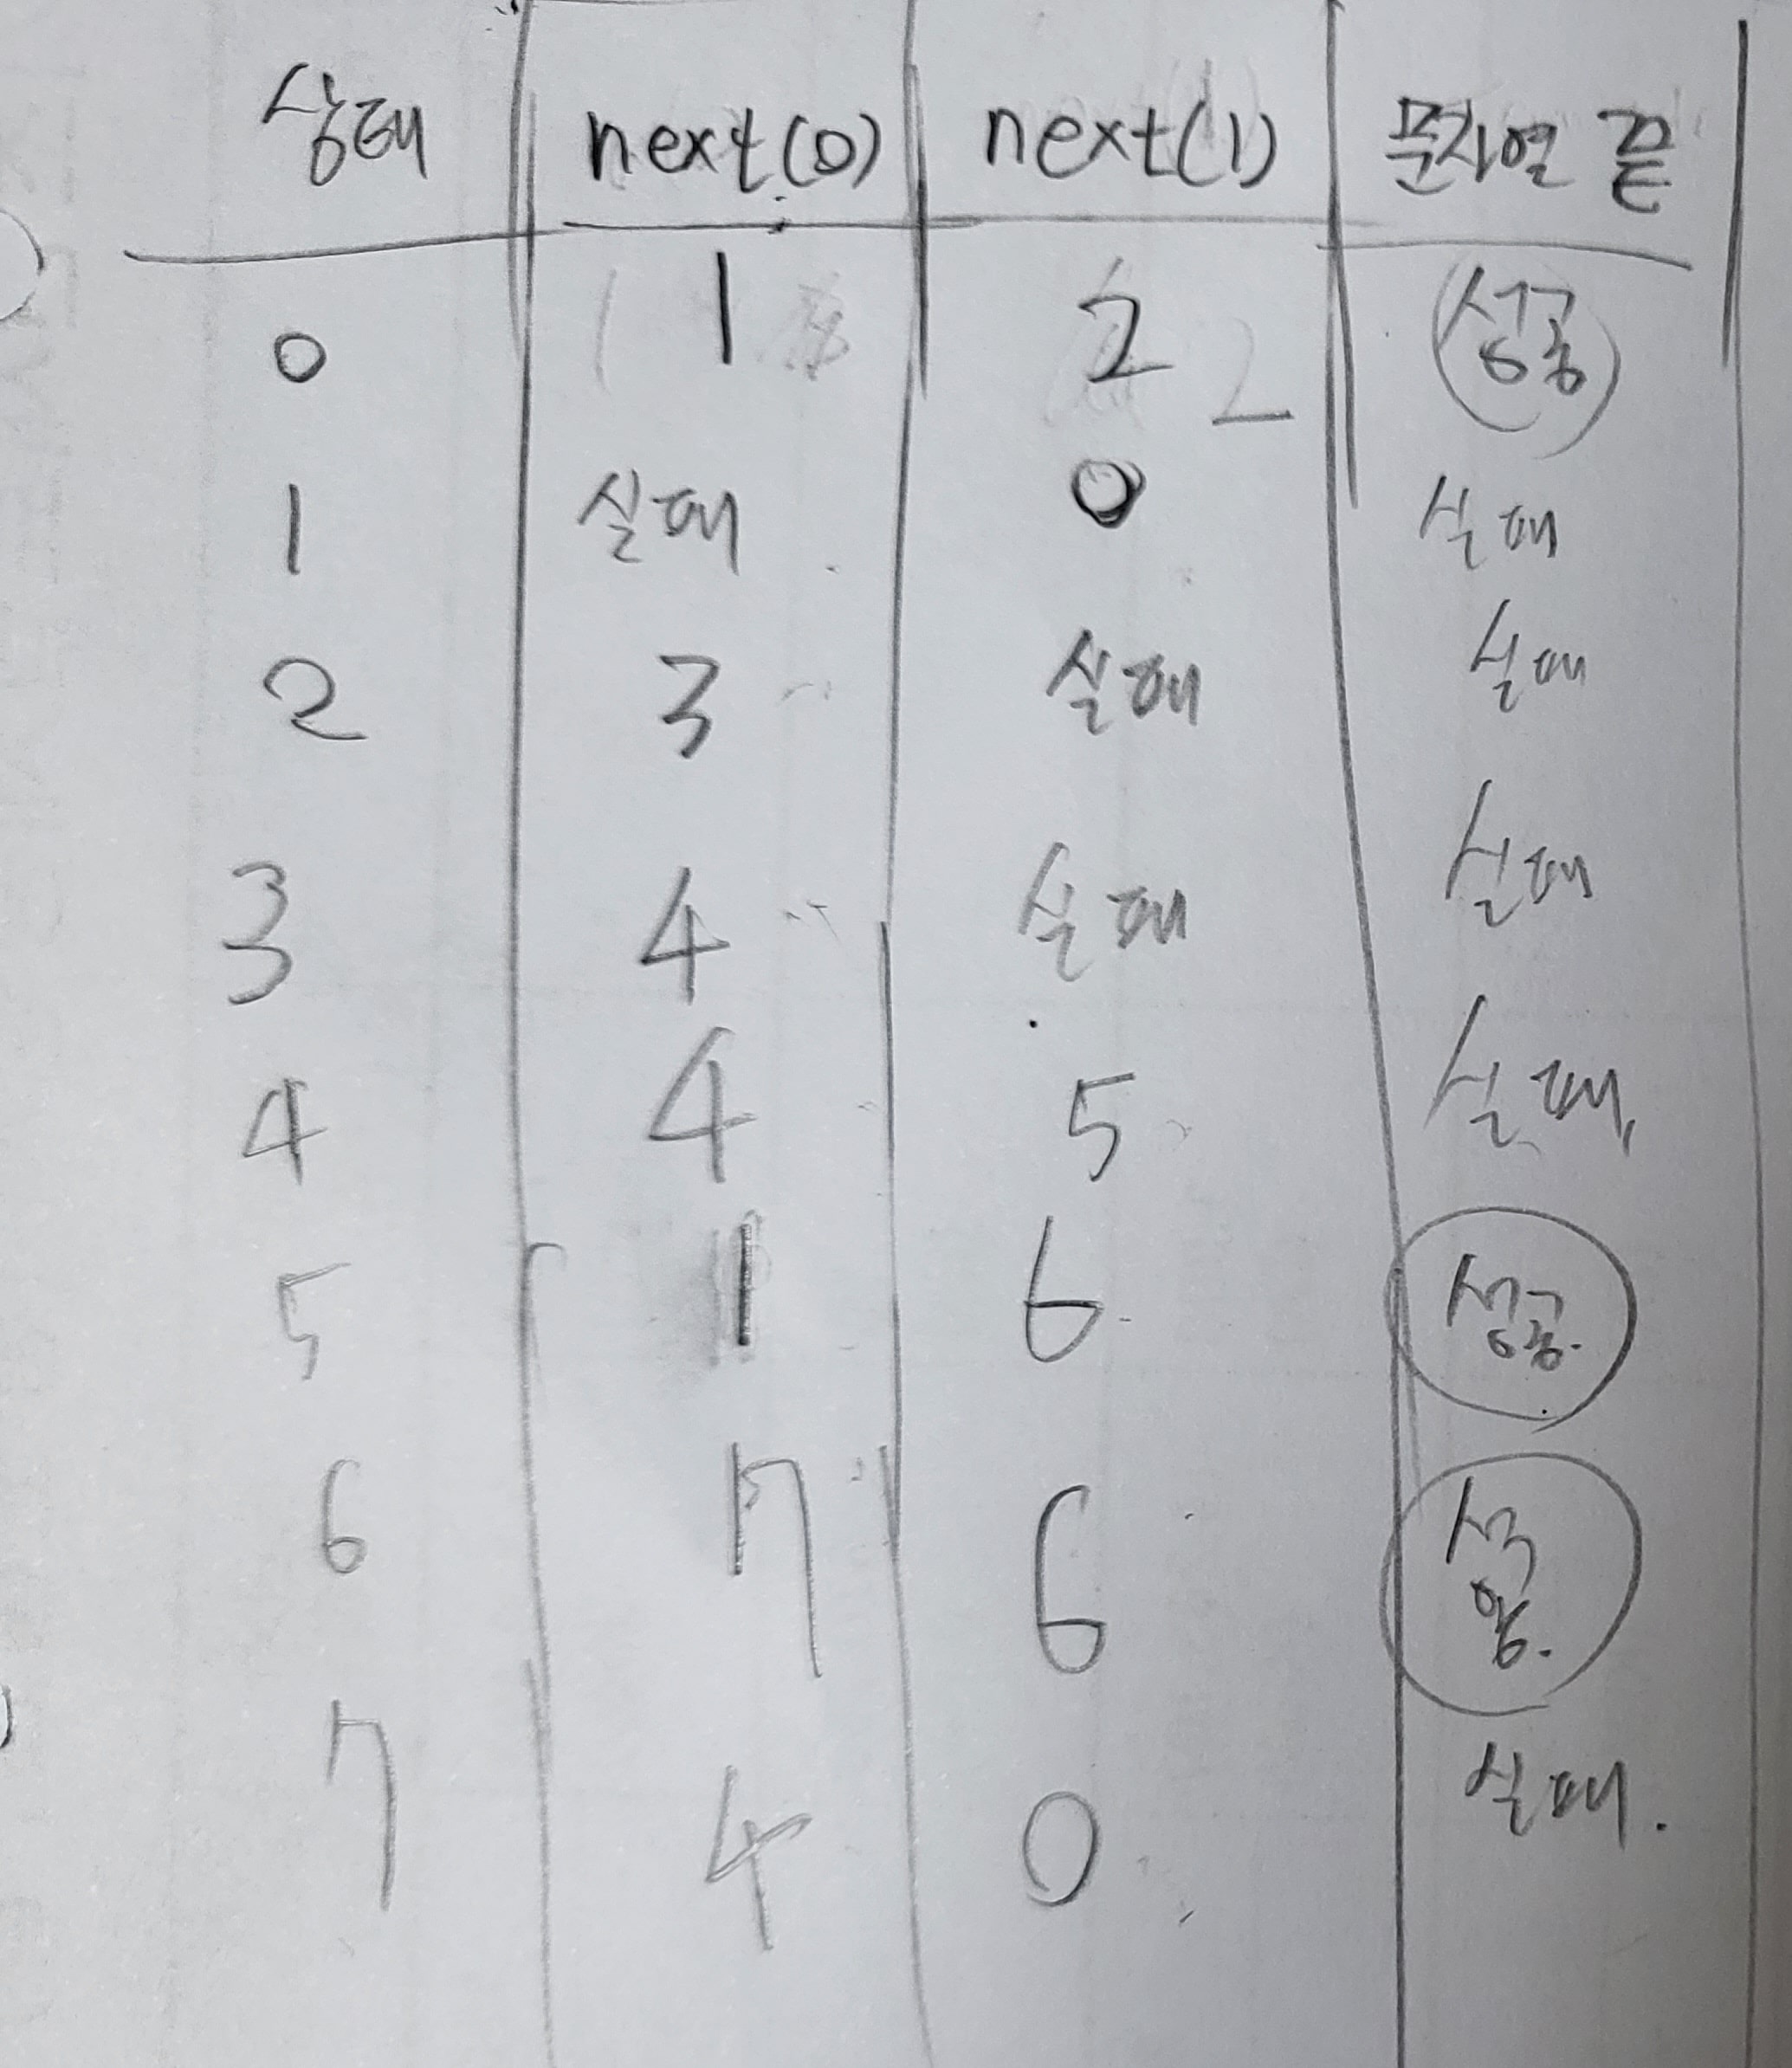 상태 next(0) next(1) 문자열 끝
0 1 2 성공
1 실패 0 실패
2 3 실패 실패
3 4 실패 실패
4 4 5 실패
5 1 6 성공
6 7 6 성공
7 4 0 실패.